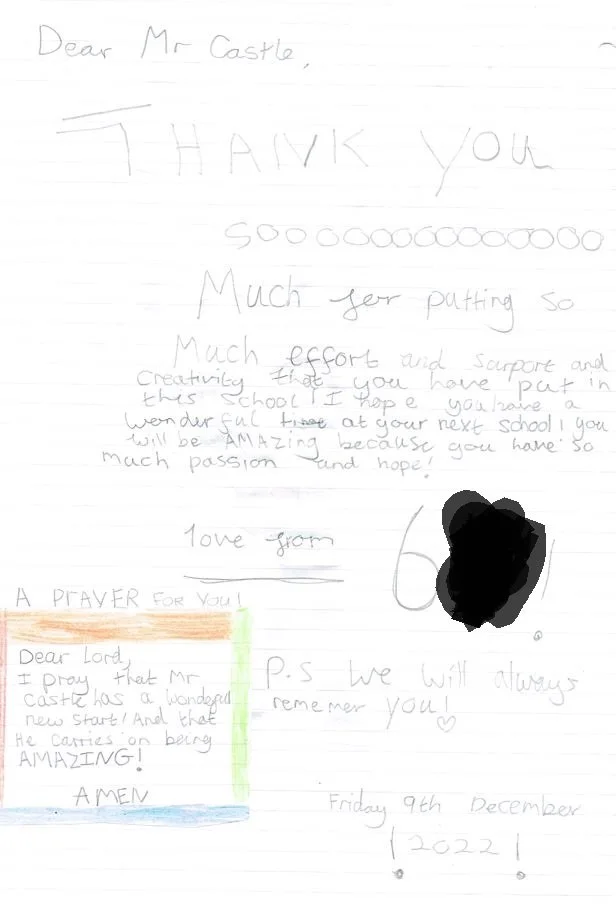 Dear Mr Castle,
THANK you
SOOOOOOOOOOOOOOO
Much for putting so
Much effort and surport and
Creativity that you have put in
this school! I hope you have a
wonderful time at your next school! you
will be AMAzing because you have so
much passion and hope!
love from
6 !
A PRAYER FOR YOU!
Dear Lord,
I pray that Mr
Castle has a wonderful
new start! And that
He carries on being
AMAZING!
AMEN
P.S We will always
rememer you!
Friday 9th December
! 2022 !